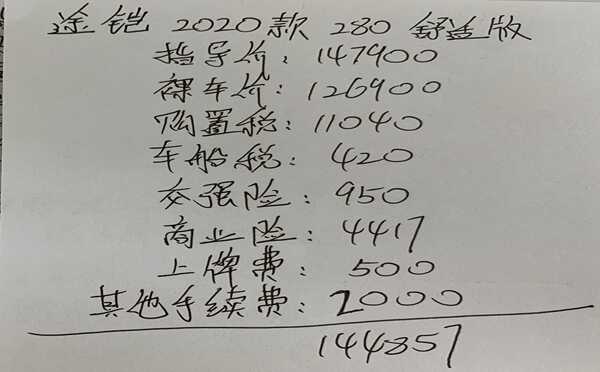 途铠 2020款 280 舒适版
指导价：147900
裸车价：126900
购置税：11040
车船税：420
交强险：950
商业险：4417
上牌费：500
其他手续费：2000
144857